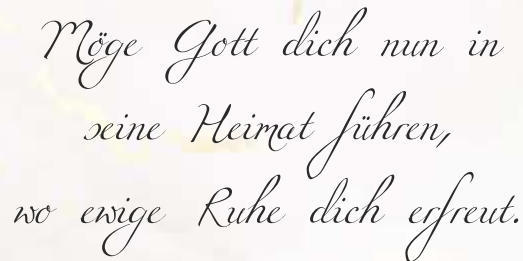 Möge Gott dich nun in
seine Heimat führen,
wo ewige Ruhe dich erfreut.